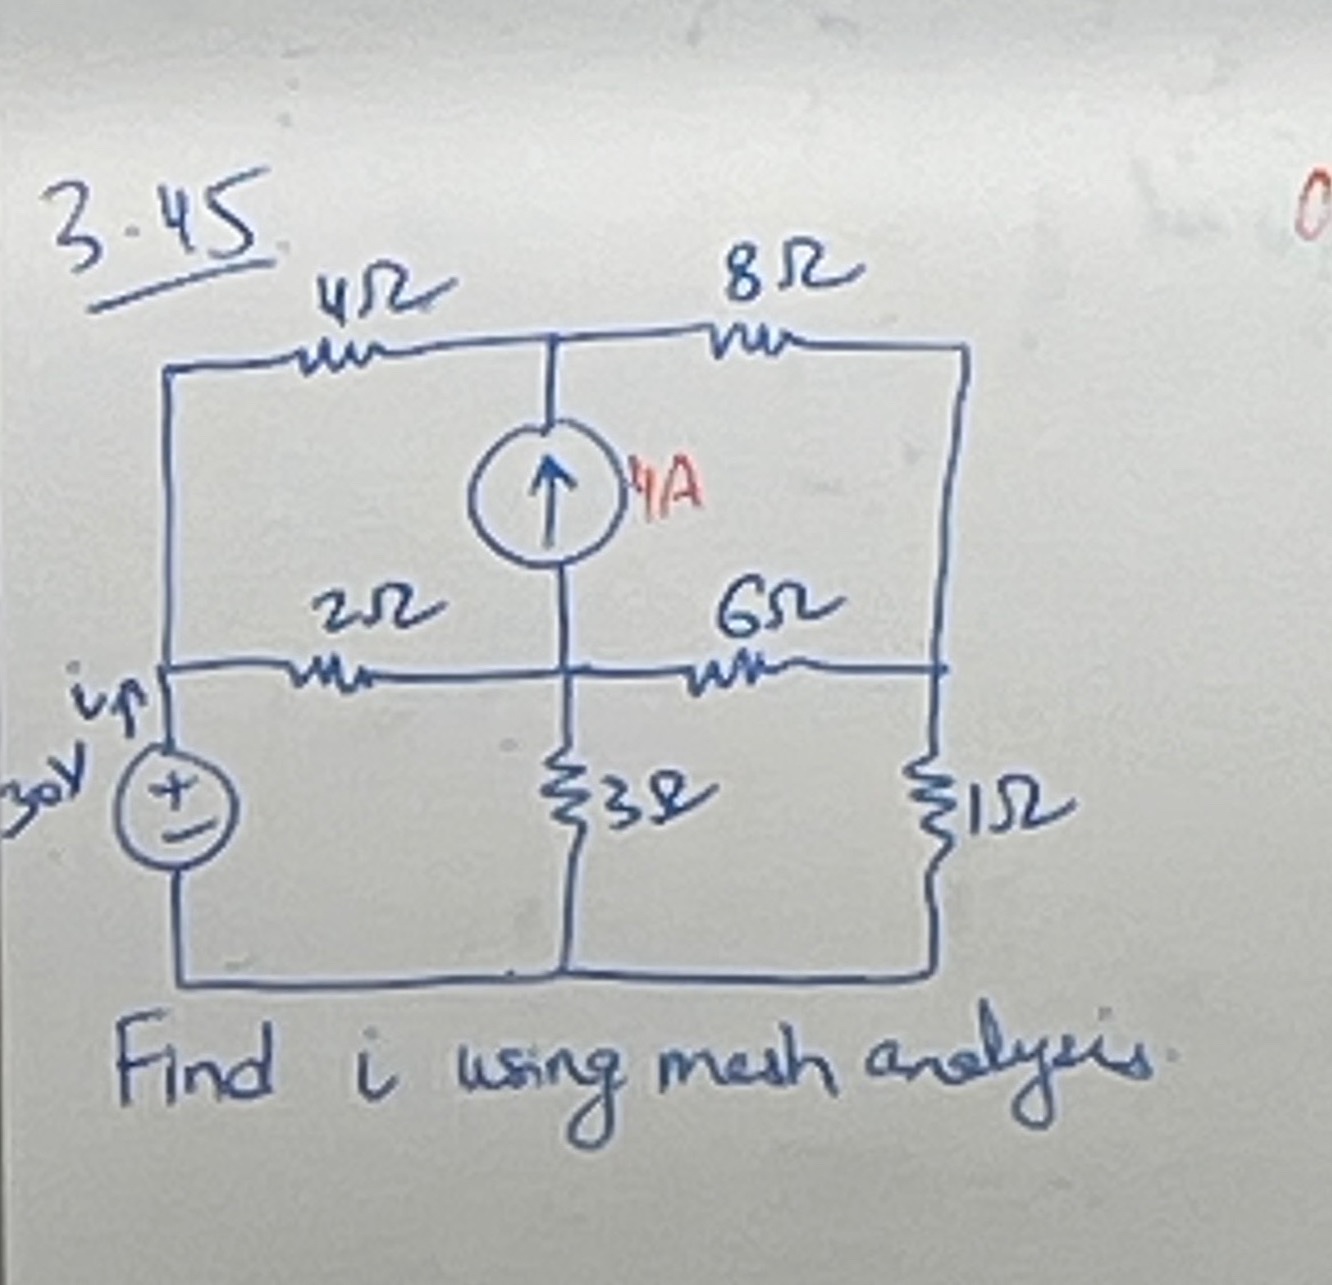 3.45
4Ω
8Ω
4A
2Ω
6Ω
i
30V
+
−
3Ω
1Ω
Find i using mesh analysis.